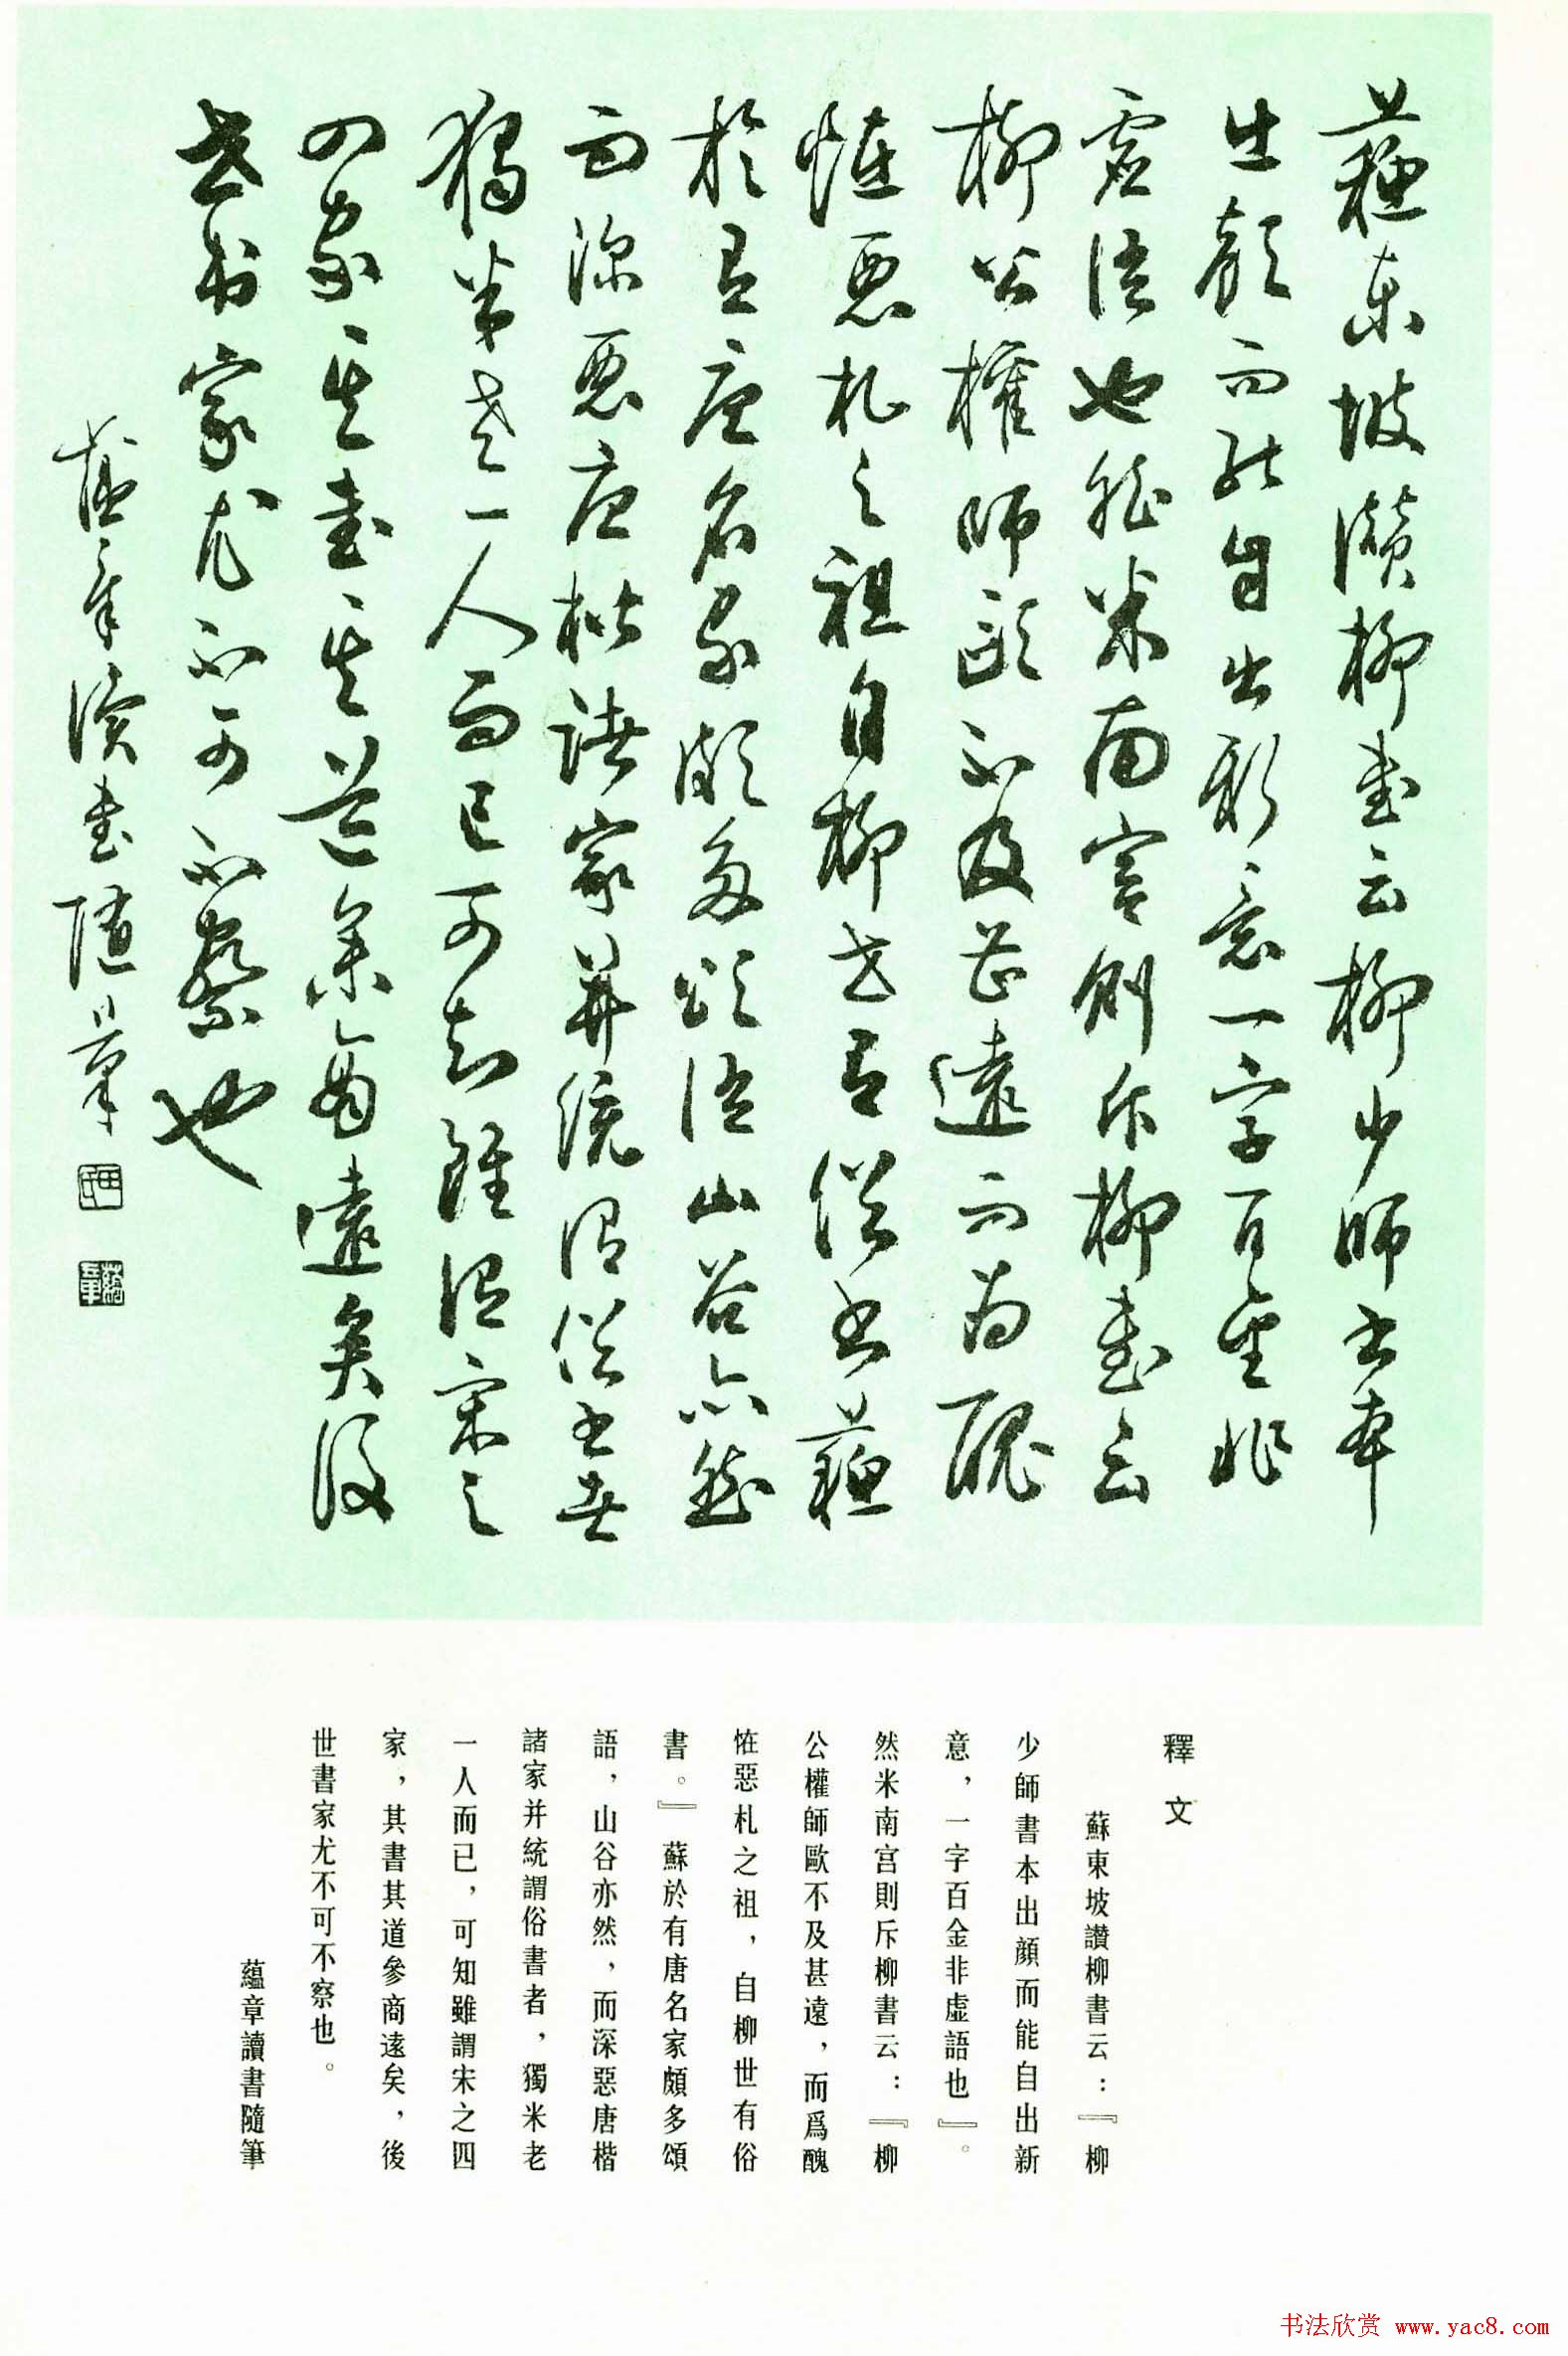 蘇東坡讚柳書云柳少師書本
出顔而能自出新意一字百金非
虚語也然米南宫則斥柳書云
柳公權師歐不及甚遠而為醜
恠惡札之祖自柳世有俗書蘇
於有唐名家頗多頌語山谷亦然
而深惡唐楷諸家并統謂俗書者
獨米老一人而已可知雖謂宋之
四家其書其道參商遠矣後
世書家尤不可不察也
蘊章讀書隨筆
釋文
蘇東坡讚柳書云：『柳
少師書本出顔而能自出新
意，一字百金非虚語也』。
然米南宫則斥柳書云：『柳
公權師歐不及甚遠，而爲醜
恠惡札之祖，自柳世有俗
書。』蘇於有唐名家頗多頌
語，山谷亦然，而深惡唐楷
諸家并統謂俗書者，獨米老
一人而已，可知雖謂宋之四
家，其書其道參商遠矣，後
世書家尤不可不察也。
蘊章讀書隨筆
书法欣赏 www.yac8.com